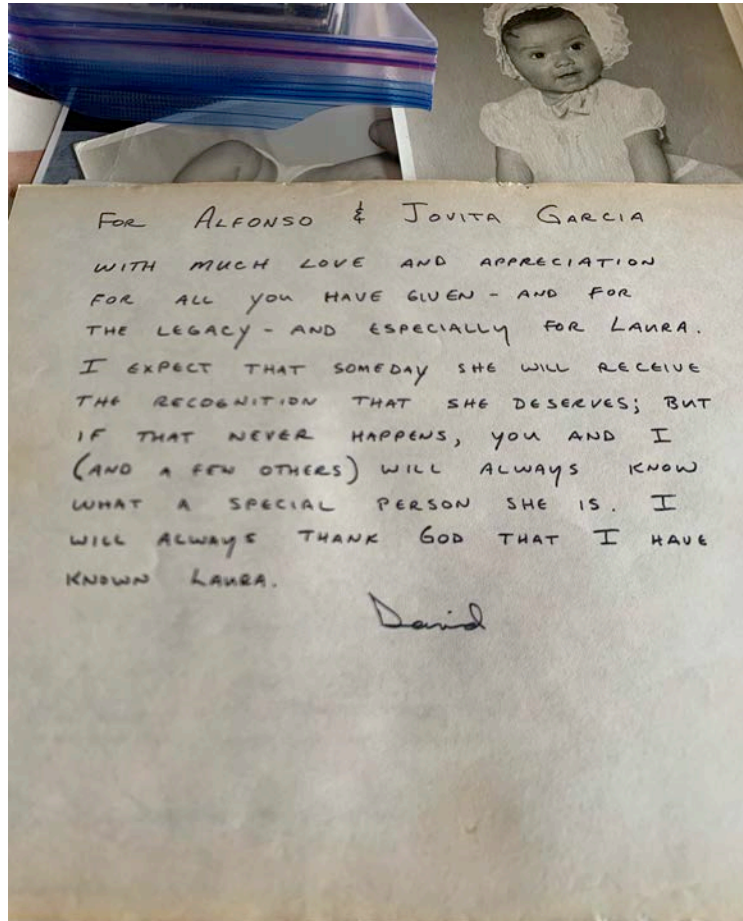 FOR ALFONSO & JOVITA GARCIA
WITH MUCH LOVE AND APPRECIATION
FOR ALL YOU HAVE GIVEN - AND FOR
THE LEGACY - AND ESPECIALLY FOR LAURA.
I EXPECT THAT SOMEDAY SHE WILL RECEIVE
THE RECOGNITION THAT SHE DESERVES; BUT
IF THAT NEVER HAPPENS, YOU AND I
(AND A FEW OTHERS) WILL ALWAYS KNOW
WHAT A SPECIAL PERSON SHE IS. I
WILL ALWAYS THANK GOD THAT I HAVE
KNOWN LAURA.
David